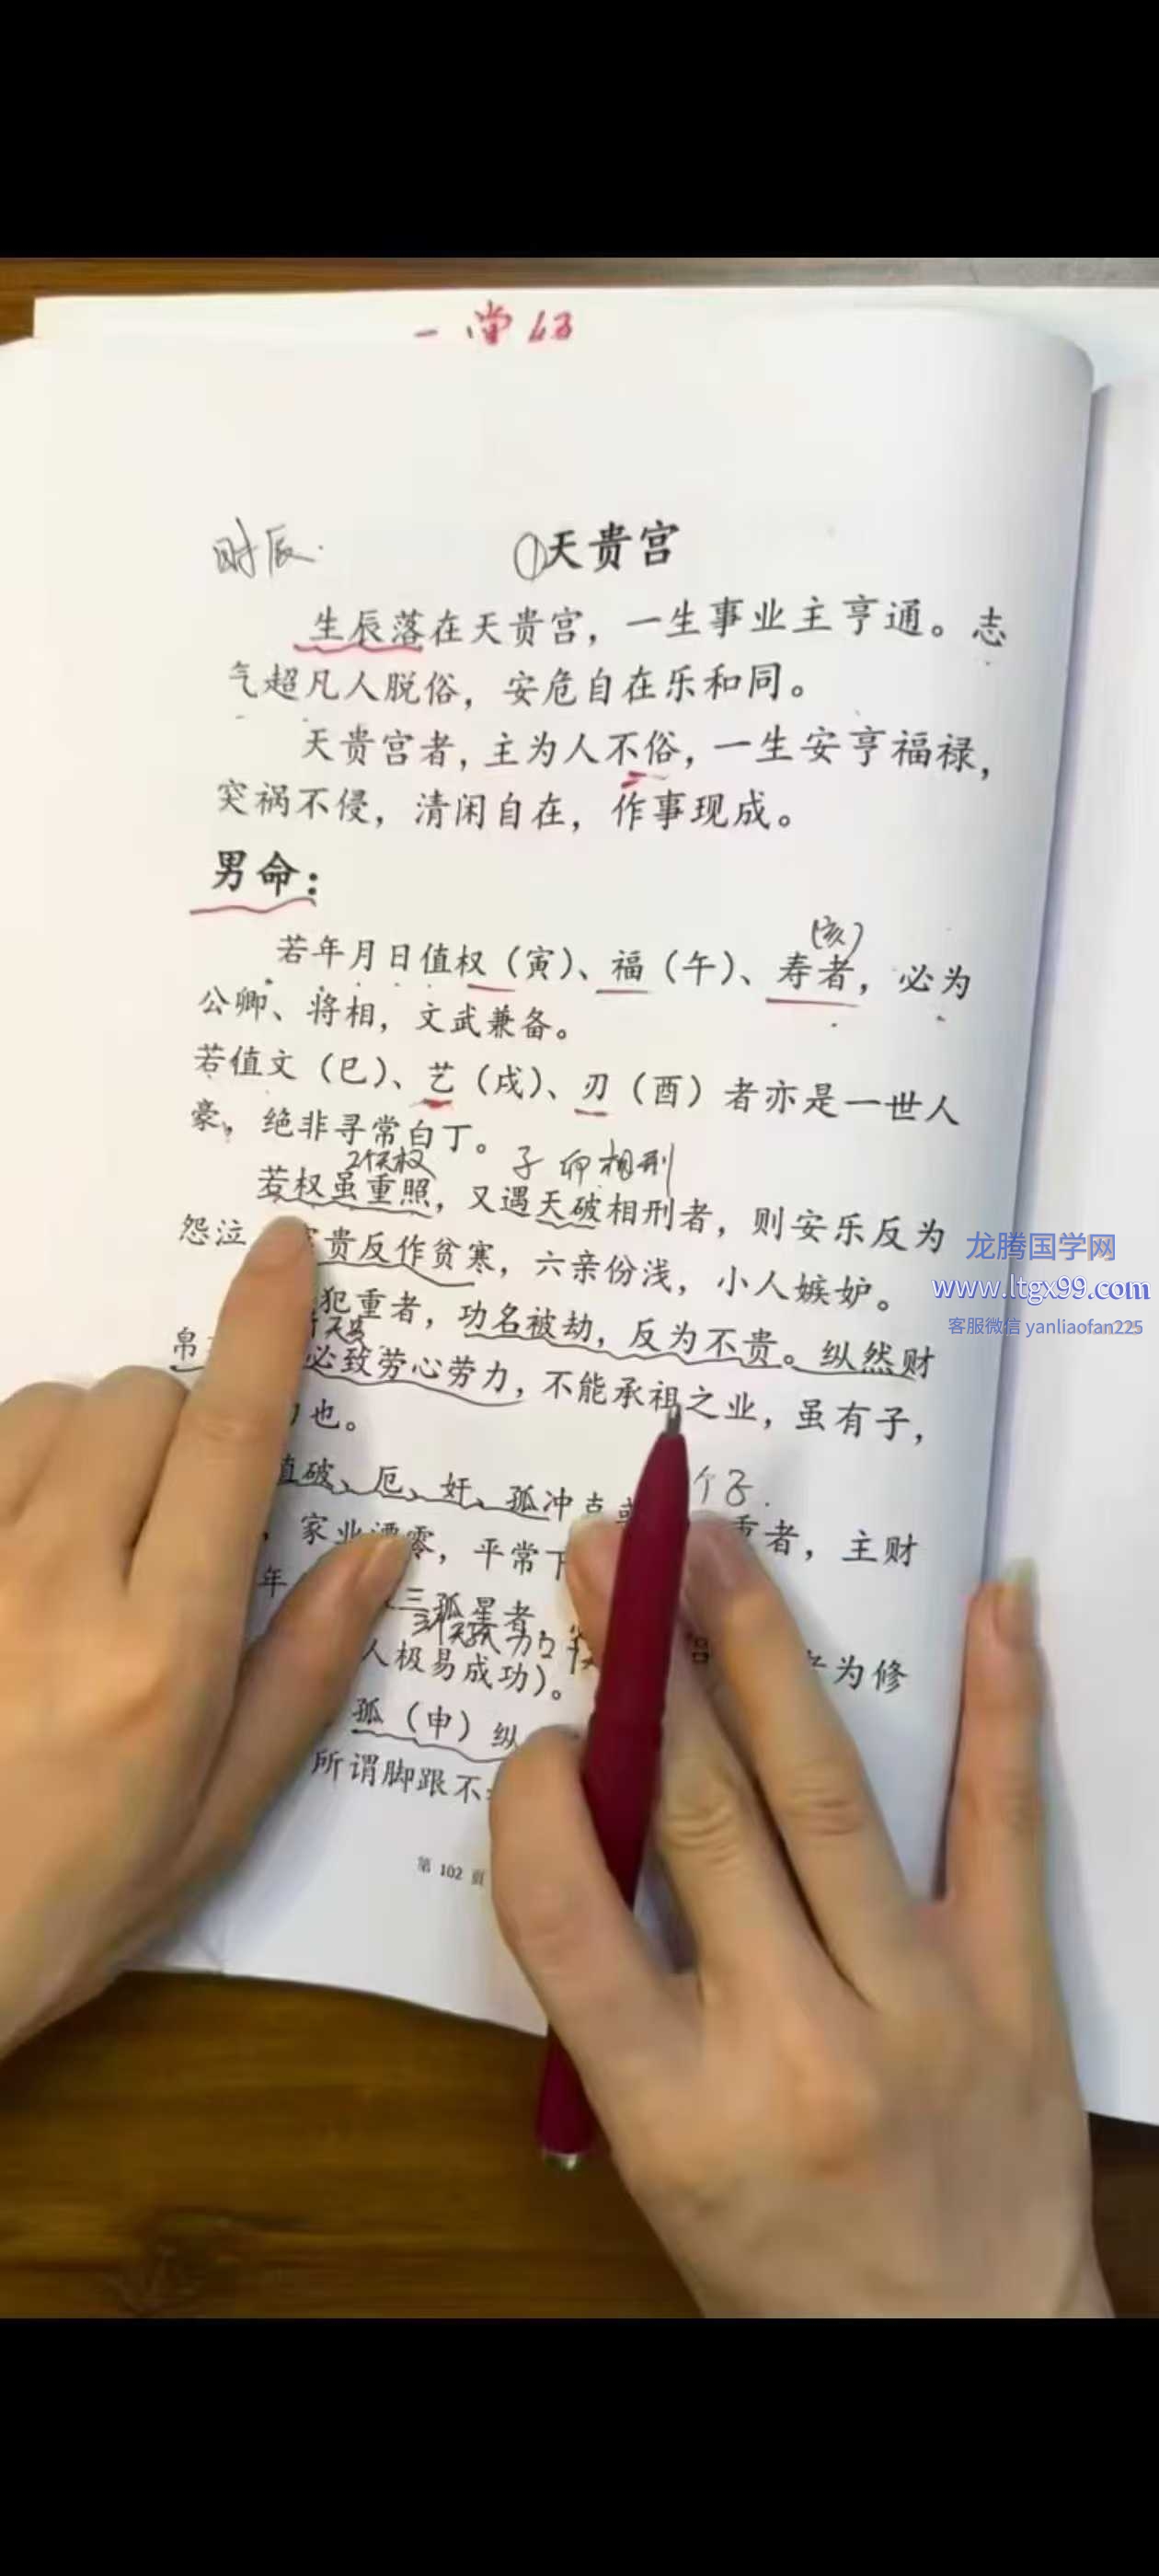 一掌
时辰
①天贵宫
生辰落在天贵宫，一生事业主亨通。志
气超凡人脱俗，安危自在乐和同。
天贵宫者，主为人不俗，一生安亨福禄，
突祸不侵，清闲自在，作事现成。
男命：
（亥）
若年月日值权（寅）、福（午）、寿者，必为
公卿、将相，文武兼备。
若值文（巳）、艺（戌）、刃（酉）者亦是一世人
豪，绝非寻常白丁。
2个天权 子卯相刑
若权虽重照，又遇天破相刑者，则安乐反为
怨泣 贵反作贫寒，六亲份浅，小人嫉妒。
犯重者，功名被劫，反为不贵。纵然财
帛 必致劳心劳力，不能承祖之业，虽有子，
也。
个子.
值破、厄、奸、孤冲 重者，主财
，家业漂零，平常下
年 三孤星者， 为修
三个天孤
人极易成功）。
孤（申）纵
所谓脚跟不
第 102 页
龙腾国学网
www.ltgx99.com
客服微信 yanliaofan225